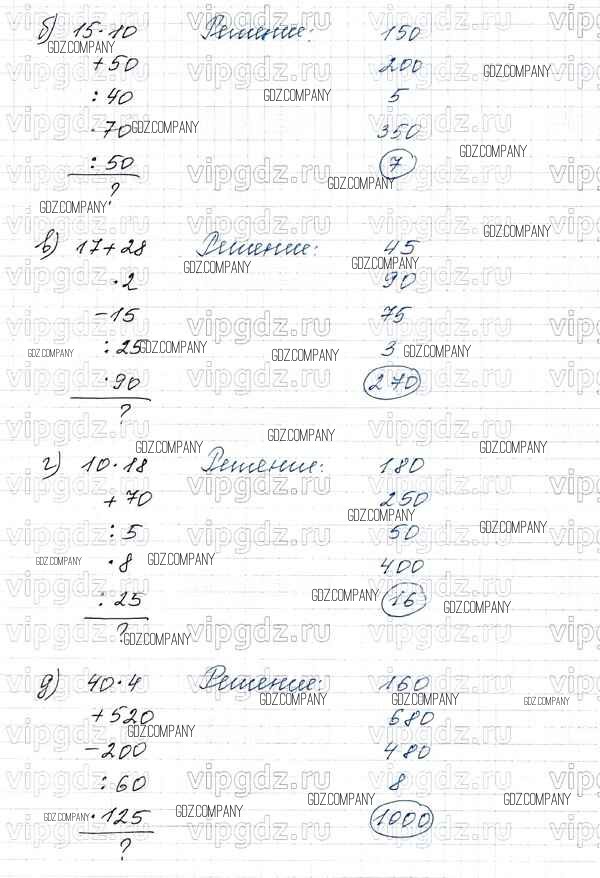 б) 15·10 Решение: 150
+50 200
:40 5
·70 350
:50 7
?
в) 17+28 Решение: 45
·2 90
-15 75
:25 3
·90 270
?
г) 10·18 Решение: 180
+70 250
:5 50
·8 400
:25 16
?
д) 40·4 Решение: 160
+520 680
-200 480
:60 8
·125 1000
?
vipgdz.ru
GDZ.COMPANY